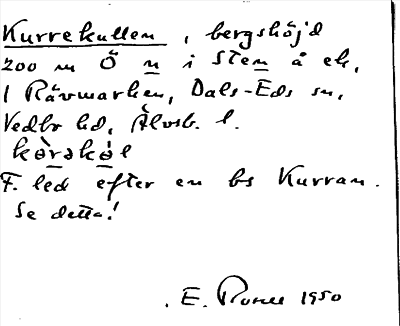 Kurrekullen, bergshöjd
200 m Ö n i Sten å ek,
I Rävmarken, Dals-Eds sn,
Vedbo hd, Älvsb. l.
F. led efter en bs Kurran.
Se detta!
E. 1950